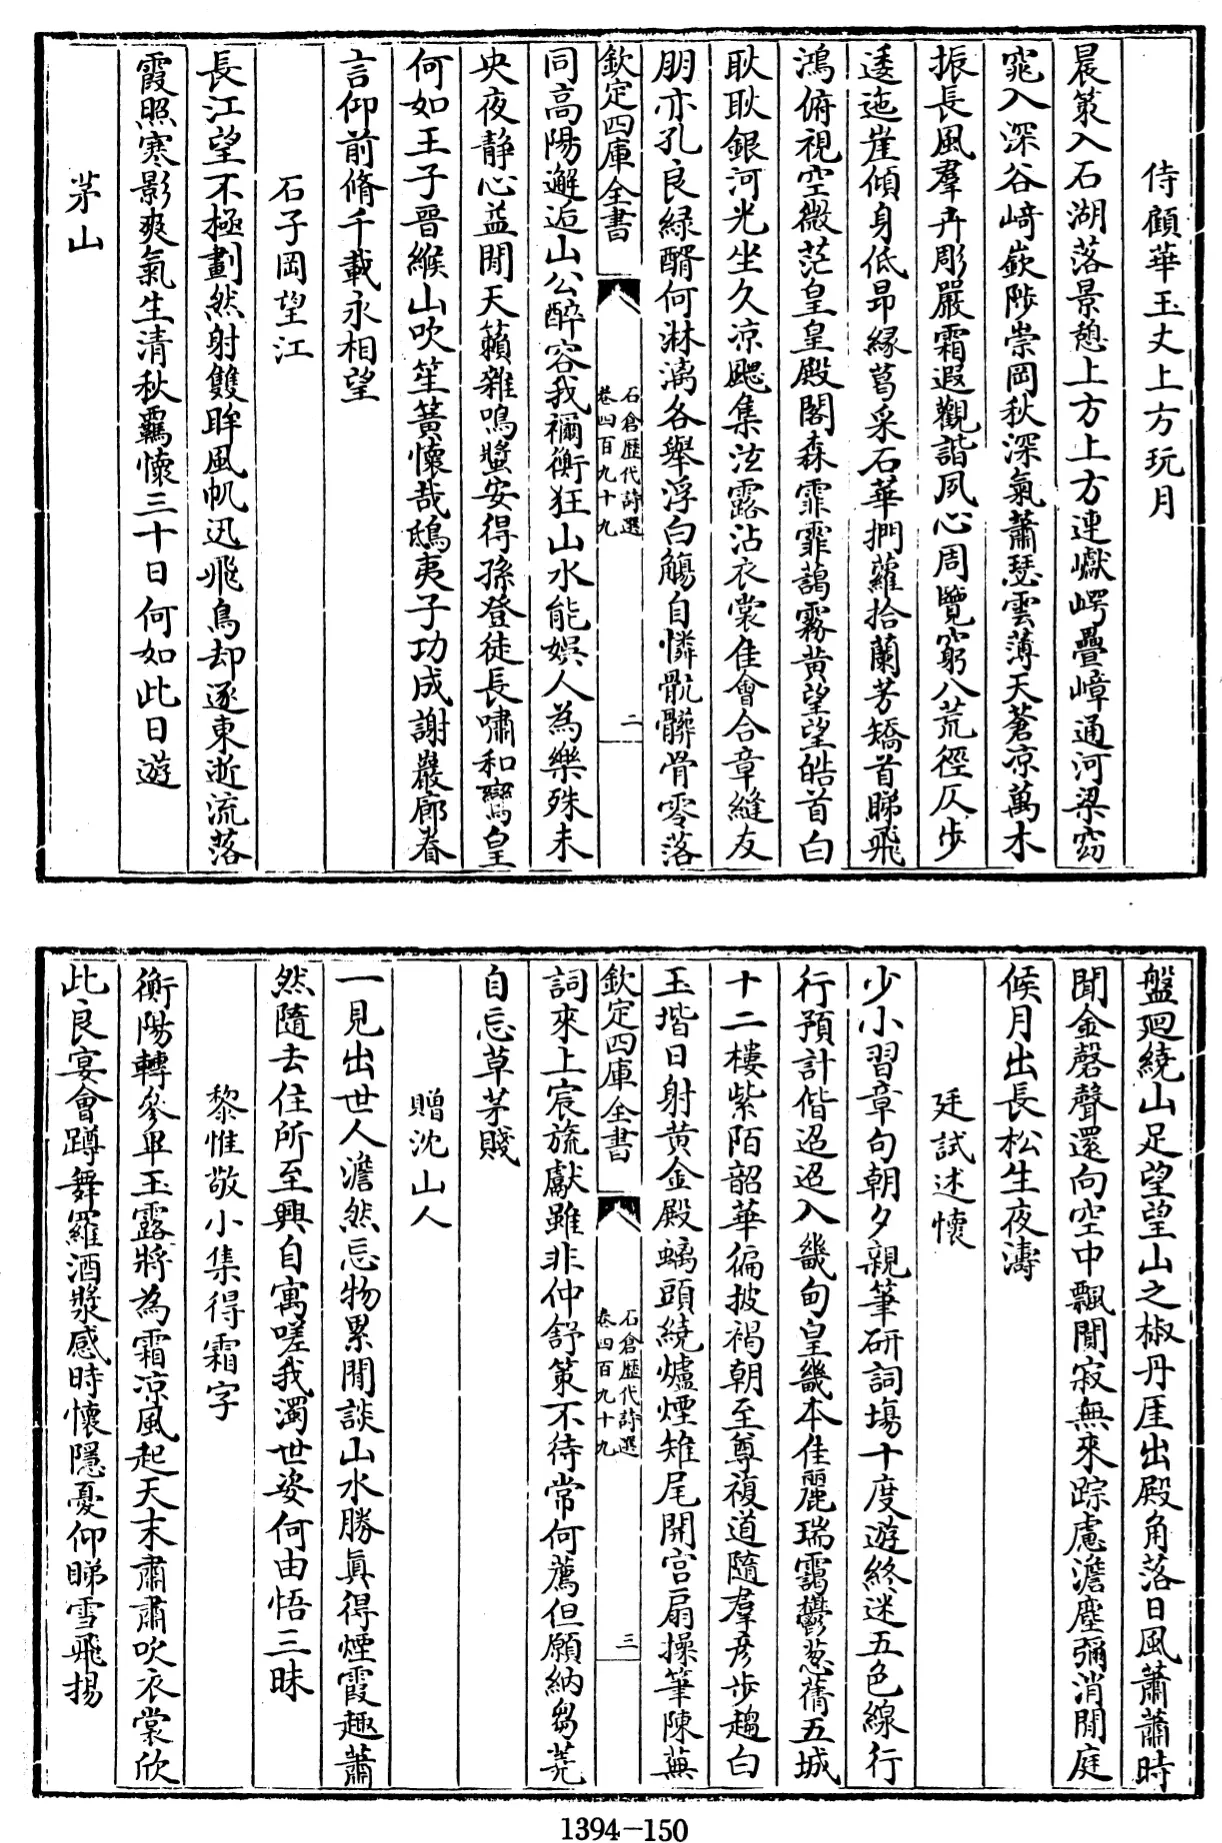 侍顧華玉丈上方玩月
晨策入石湖落景憩上方上方連巘崿疊嶂通河梁窈
窕入深谷﨑嶔陟崇岡秋深氣蕭瑟雲薄天蒼凉萬木
振長風羣卉彫嚴霜遐觀諧夙心周覽窮八荒徑仄步
逶迤崖傾身低昂緣葛采石華捫蘿拾蘭芳矯首睇飛
鴻俯視空微茫皇皇殿閣森霏霏藹霧黄望望皓首白
耿耿銀河光坐久凉颸集泫露沾衣裳隹會合章縫友
朋亦孔良緑醑何淋漓各舉浮白觴自憐骯髒骨零落
欽定四庫全書
石倉歴代詩選
卷四百九十九
二
同高陽邂逅山公醉容我禰衡狂山水能娱人為樂殊未
央夜静心益閒天籟雜鳴螿安得孫登徒長嘯和鸞皇
何如王子晉緱山吹笙簧懷哉鴟夷子功成謝巖廊眷
言仰前脩千載永相望
石子岡望江
長江望不極劃然射雙眸風帆迅飛鳥却逐東逝流落
霞照寒影爽氣生清秋羈懷三十日何如此日遊
茅山
盤廻繞山足望望山之椒丹厓出殿角落日風蕭蕭時
聞金磬聲還向空中飄閴寂無來踪慮澹塵彌消閒庭
候月出長松生夜濤
廷試述懷
少小習章句朝夕親筆研詞塲十度遊終迷五色線行
行預計偕迢迢入畿甸皇畿本佳麗瑞靄鬱葱蒨五城
十二樓紫陌韶華徧披褐朝至尊複道隨羣彦步趨白
玉堦日射黄金殿螭頭繞爐煙雉尾開宫扇操筆陳蕪
欽定四庫全書
石倉歴代詩選
卷四百九十九
三
詞來上宸旒獻雖非仲舒策不待常何薦但願納芻蕘
自忘草茅賤
贈沈山人
一見出世人澹然忘物累閒談山水勝真得煙霞趣蕭
然隨去住所至興自寓嗟我濁世姿何由悟三昧
黎惟敬小集得霜字
衡陽轉參畢玉露將為霜凉風起天末肅肅吹衣裳欣
此良宴會蹲舞羅酒漿感時懷隱憂仰睇雪飛揚
1394-150